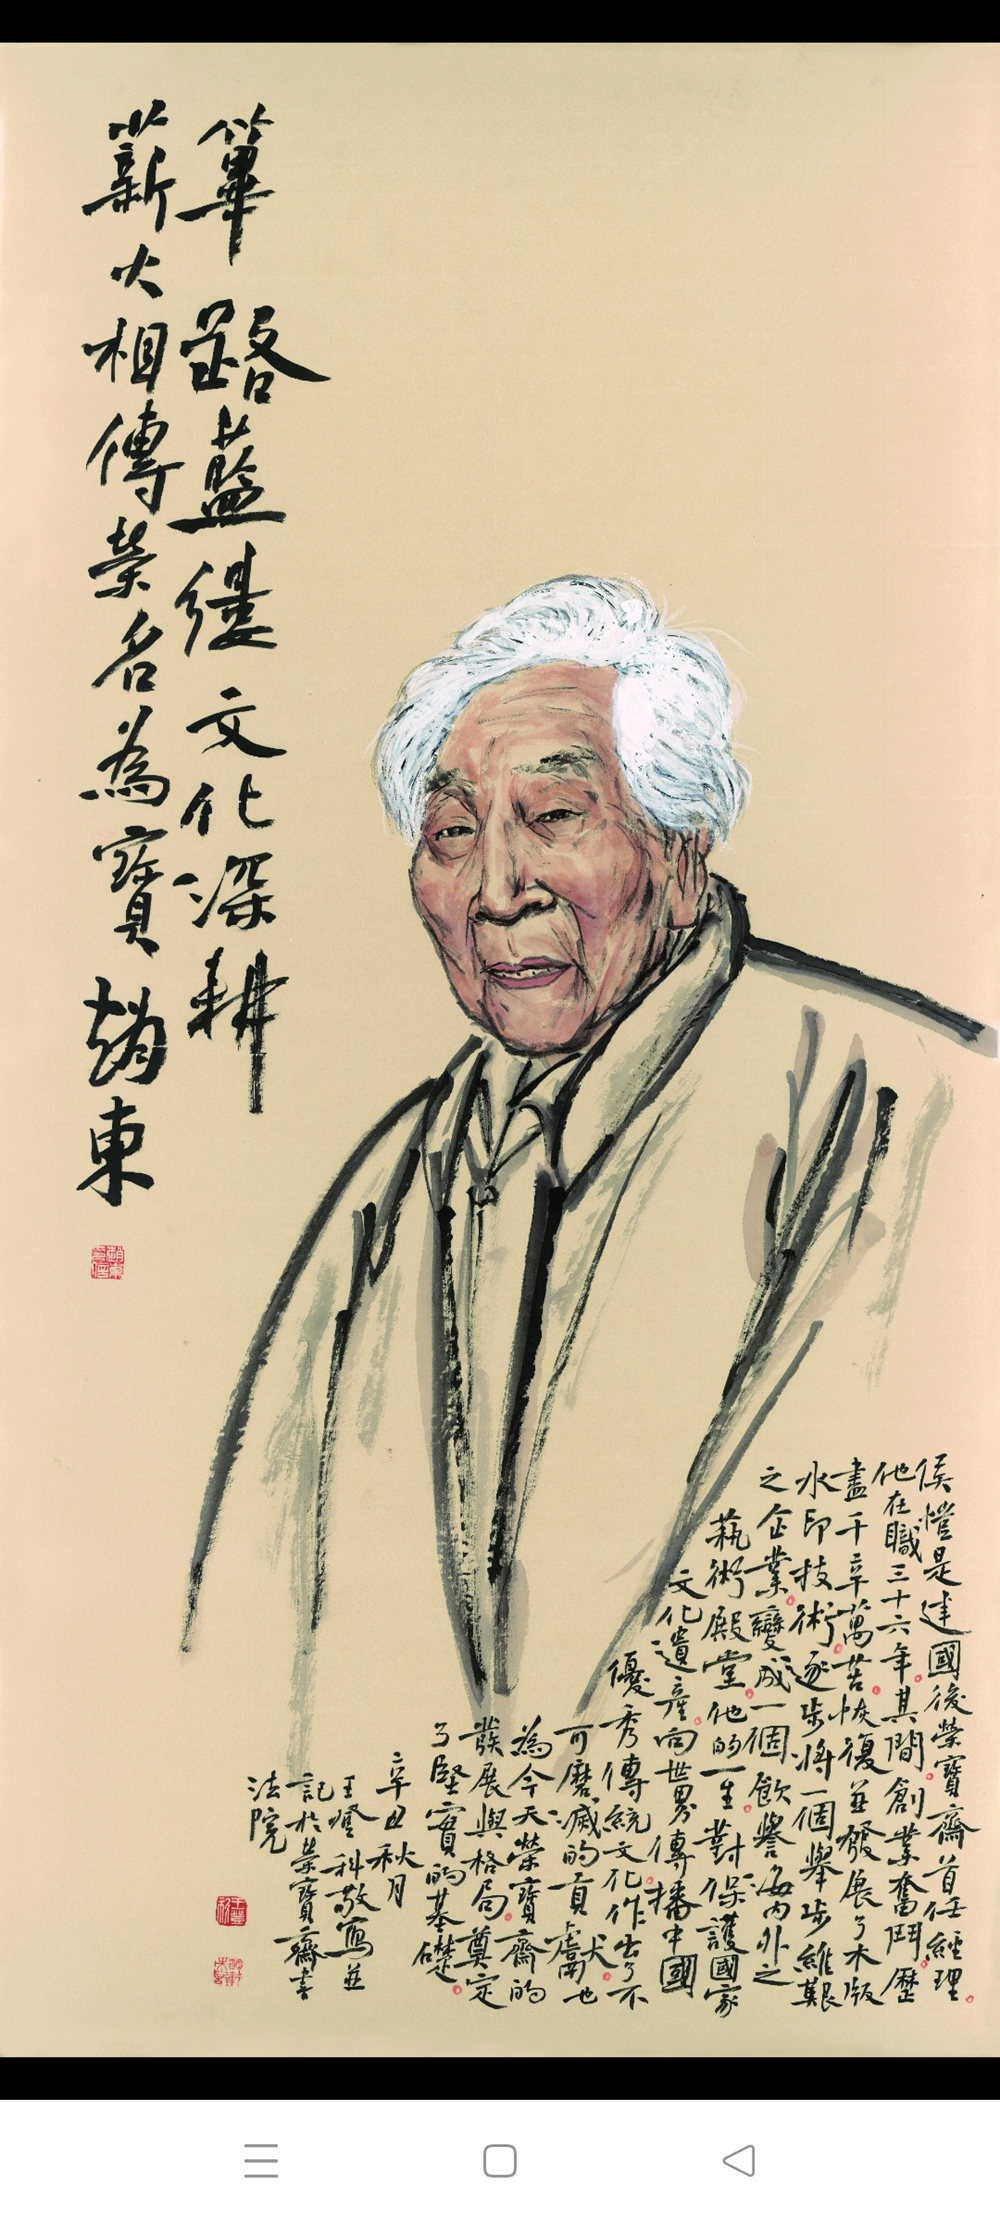 篳路藍縷文化深耕
薪火相傳榮名為寶趙東
侯愷是建國後榮寶齋首任經理
他在職三十六年其間創業奮鬥歷
盡千辛萬苦恢復並發展了木版
水印技術逐步將一個舉步維艱
之企業變成一個飲譽海內外之
藝術殿堂他的一生對保護國家
文化遺產向世界傳播中國
優秀傳統文化作出了不
可磨滅的貢獻也
為今天榮寶齋的
發展與格局奠定
了堅實的基礎
辛丑秋月
王登科敬寫並
記於榮寶齋書
法院